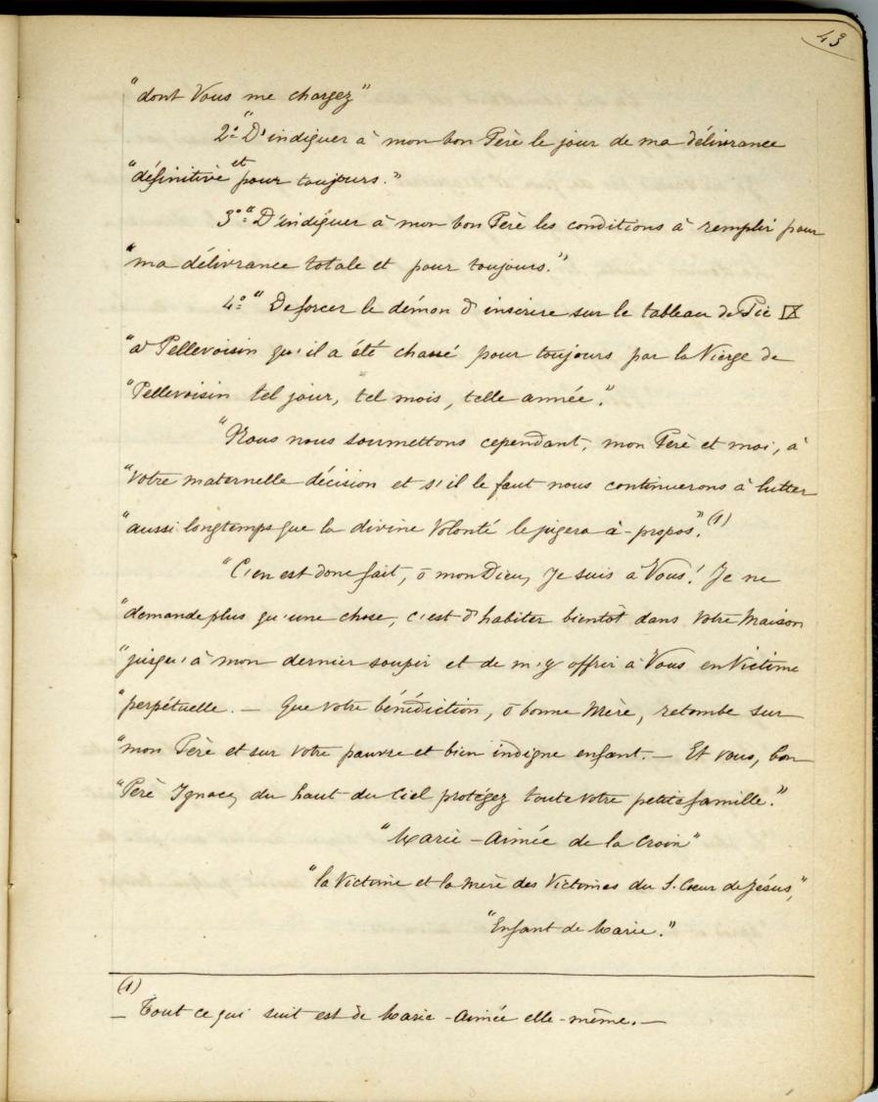 43
"dont Vous me chargez"
2º "D'indiquer à mon bon Père le jour de ma délivrance
"définitive et pour toujours."
3º "D'indiquer à mon bon Père les conditions à remplir pour
"ma délivrance totale et pour toujours."
4º "De forcer le démon d'inscrire sur le tableau de Pie IX
"à Pellevoisin qu'il a été chassé pour toujours par la Vierge de
"Pellevoisin tel jour, tel mois, telle année."
"Nous nous soumettons cependant, mon Père et moi, à
"votre maternelle décision et s'il le faut nous continuerons à lutter
"aussi longtemps que la divine Volonté le jugera à-propos." (1)
"C'en est donc fait, ô mon Dieu, Je suis à Vous! Je ne
"demande plus qu'une chose, c'est d'habiter bientôt dans votre Maison
"jusqu'à mon dernier soupir et de m'y offrir à Vous en Victime
"perpétuelle. — Que votre bénédiction, ô bonne Mère, retombe sur
"mon Père et sur votre pauvre et bien indigne enfant. — Et vous, bon
"Père Ignace, du haut du Ciel protégez toute votre petite famille."
"Marie-Aimée de la Croix"
"la Victime et la Mère des Victimes du S. Cœur de Jésus,"
"Enfant de Marie."
(1)
— Tout ce qui suit est de Marie-Aimée elle-même. —